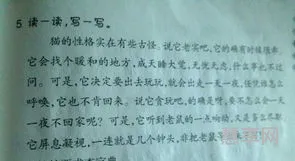 5 读一读,写一写。
猫的性格实在有些古怪。说它老实吧,它的确有时候很乖。
它会找个暖和的地方,成天睡大觉,无忧无虑,什么事也不过
问。可是,它决定要出去玩玩,就会出走一天一夜,任凭谁怎么
呼唤,它也不肯回来。说它贪玩吧,的确是呀,要不怎么会一天
一夜不回家呢?可是,它听到老鼠的一点响动,又是多么尽职。
它屏息凝视,一连就是几个钟头,非把老鼠